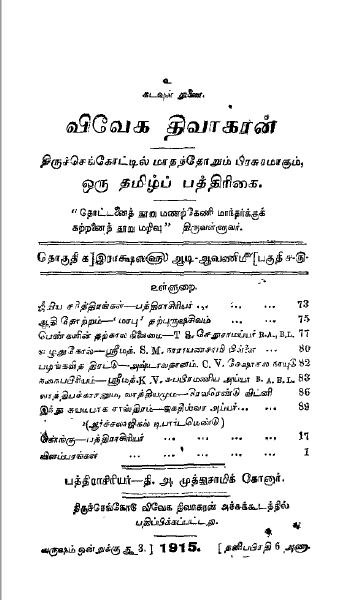 உ
கடவுள் துணை.
விவேக திவாகரன்
திருச்செங்கோட்டில் மாதந்தோறும் பிரசுரமாகும்,
ஒரு தமிழ்ப் பத்திரிகை.
“தொட்டனைத் தூறு மணற்கேணி மாந்தர்க்குக்
கற்றனைந் தூறு மறிவு” திருவள்ளுவர்.
தொகுதி க] இராக்ஷஸளு ஆடி-ஆவணிமீ [பகுதி ௪-௫
உள்ளுறை.
சரித்திரங்கள்—பத்திராசிரியர் ... ... ... 73
ஆதி தோற்றம்—‘மரபு’ தற்புருஷசிவம் ... ... 75
பெண்களின் தற்கால நிலைமை—T S. சேதுராமய்யர் B.A., B.L. 77
ஸ்ரீமத். S. M. நாராயணசாமி பிள்ளை ... 80
திரட்டு—அஷ்டாவதானம். C. V. சேஷாசல நாயுடு 82
ஸ்ரீமத் K. V. சுப்பிரமணிய அய்யர் B. A., B. L. 83
வாத்தியமும்—ரெவரெண்டு விட்னி 86
இந்து சுயமரபு சாஸ்திரம்—ஜகதீஸ்வர அப்பர்... ... 89
(ஆர்ச்சலாஜிகல் டிபார்ட்மெண்டு)
பத்திராசிரியர் ... ... ... ... 17
விளம்பரங்கள் ... ... ... ... 1
பத்திராசிரியர்—தி. அ. முத்துசாமிக் கோனார்.
திருச்செங்கோடு விவேக திவாகரன் அச்சுக்கூடத்தில்
பதிப்பிக்கப்பட்டது.
வருஷம் ஒன்றுக்கு ரூ 3.] 1915. [தனிப்பிரதி 6 அணா.